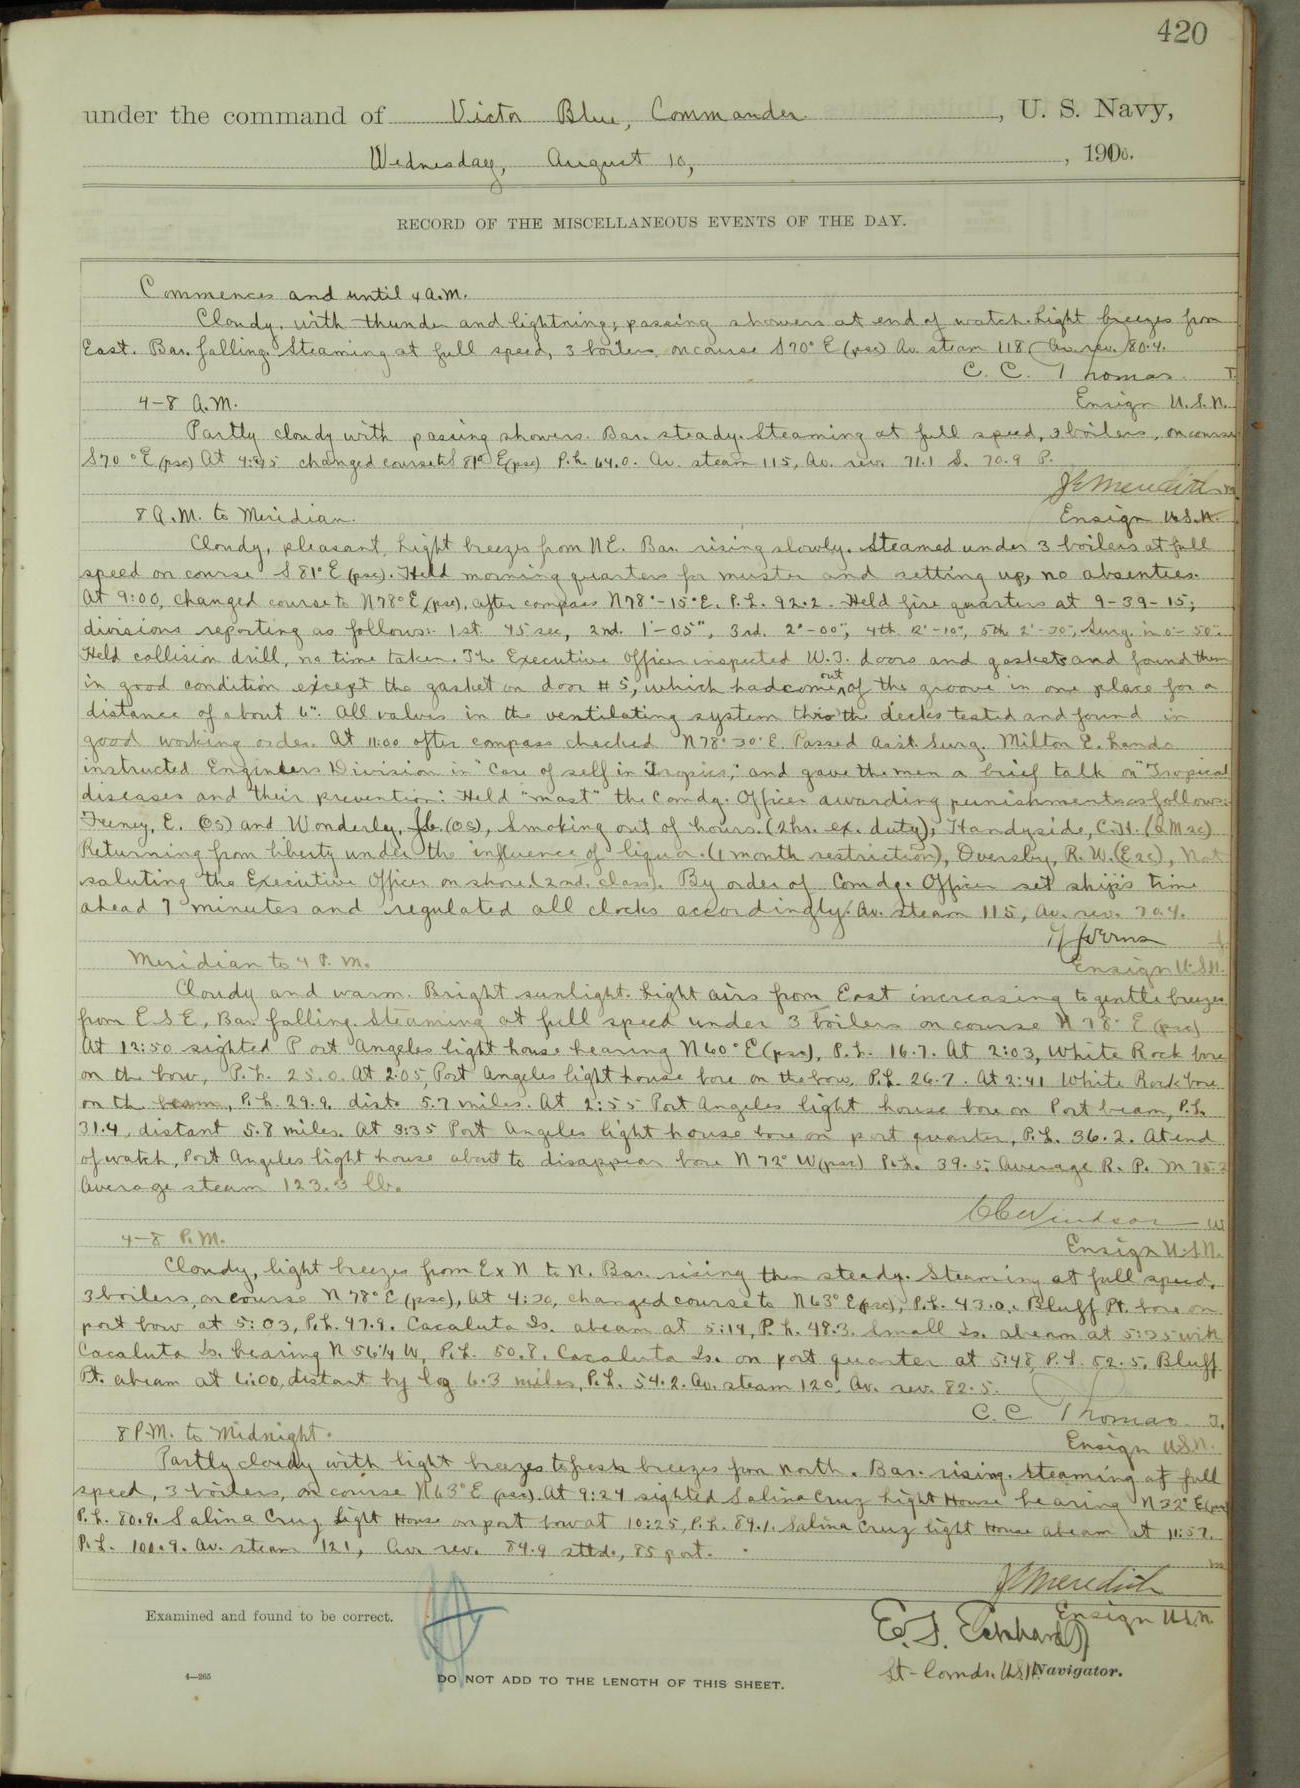 420
under the command of Victor Blue, Commander, U. S. Navy,
Wednesday, August 10, 1910.
RECORD OF THE MISCELLANEOUS EVENTS OF THE DAY.
Commences and until 4 A.M.
Cloudy, with thunder and lightning, passing showers at end of watch. Light breezes from
East. Bar. falling. Steaming at full speed, 3 boilers, on course S 70° E (psc) Av. steam 118, Av. rev. 80.4.
C. C. Thomas T.
4-8 A.M. Ensign U.S.N.
Partly cloudy with passing showers. Bar. steady. Steaming at full speed, 3 boilers, on course
S70°E (psc) At 4:45 changed course to S 81° E (psc) P.L. 64.0. Av. steam 115, Av. rev. 71.1 S. 70.9 P.
Meredith
8 A.M. to Meridian. Ensign U.S.N.
Cloudy, pleasant, Light breezes from NE. Bar. rising slowly. Steamed under 3 boilers at full
speed on course S 81° E (psc). Held morning quarters for muster and setting up, no absentees.
At 9:00, changed course to N78° E (psc), after compass N78°-15'E. P.L. 92.2. Held fire quarters at 9-39-15;
divisions reporting as follows:- 1st 45 sec, 2nd. 1'-05", 3rd. 2'-00", 4th -10", 5th 2'-30", Surg. in 0'-50".
Held collision drill, no time taken. The Executive Officer inspected W.T. doors and gaskets and found them
in good condition except the gasket on door #5, which had come out of the groove in one place for a
distance of about 6". All valves in the ventilating system thro the decks tested and found in
good working order. At 11:00 after compass checked N78°30'E. Passed Asst. Surg. Milton E. Lando
instructed Engineers Division in "Care of self in Tropics," and gave the men a brief talk on "Tropical
diseases and their prevention". Held "mast" the Comdg. Officer awarding punishments as follows:
Feeney, E. (OS) and Wonderly, (OS), Smoking out of hours. (2hr. ex. duty); Handyside, C.H. (QM2c)
Returning from liberty under the influence of liquor. (1 month restriction), Oversby, R. W. (E2c), Not
saluting the Executive Officer on shore (2nd. class). By order of Comdg. Officer set ship's time
ahead 7 minutes and regulated all clocks accordingly. Av. steam 115, Av. rev. 70.4.
Meridian to 4 P.M. Ensign U.S.N.
Cloudy and warm. Bright sunlight. Light airs from East increasing to gentle breezes
from E S E, Bar. falling. Steaming at full speed under 3 boilers on course N 78° E (psc)
At 12:50 sighted Port Angeles light house bearing N60° E (psc), P.L. 16.7. At 2:03, White Rock bore
on the bow, P.L. 25.0. At 2:05, Port Angeles light house bore on the bow, P.L. 26.7. At 2:41 White Rock bore
on the beam, P.L. 29.9. dist. 5.7 miles. At 2:55 Port Angeles light house bore on Port beam, P.L.
31.4, distant 5.8 miles. At 3:35 Port Angeles light house bore on port quarter, P.L. 36.2. At end
of watch, Port Angeles light house about to disappear bore N 72° W (psc) P.L. 39.5. Average R. P. M 75.2
Average steam 123.3 lb.
C C Windsor W
4-8 P.M. Ensign U.S.N.
Cloudy, light breezes from E x N to N. Bar. rising then steady. Steaming at full speed,
3 boilers, on course N 78° E (psc), At 4:30, changed course to N63° E (psc), P.L. 43.0. Bluff Pt. bore on
port bow at 5:03, P.L. 47.9. Cacaluta Is. abeam at 5:14, P.L. 48.3. Small Is. abeam at 5:35 with
Cacaluta Is. bearing N 56¼ W, P.L. 50.8. Cacaluta Is. on port quarter at 5:48, P.L. 52.5. Bluff
Pt. abeam at 6:00, distant by log 6.3 miles, P.L. 54.2. Av. steam 120. Av. rev. 82.5.
C. C. Thomas T.
8 P.M. to Midnight. Ensign U.S.N.
Partly cloudy with light breezes to fresh breezes from north. Bar. rising. Steaming at full
speed, 3 boilers, on course N63° E (psc). At 9:24 sighted Salina Cruz Light House bearing N32° E (psc)
P.L. 80.9. Salina Cruz Light House on port bow at 10:25, P.L. 89.1. Salina Cruz light House abeam at 11:57.
P.L. 100.9. Av. steam 121, Av. rev. 84.9 stbd., 85 port.
Meredith
Examined and found to be correct. Ensign U.S.N.
E. S.
Lt-Comdr. U.S.N. Navigator.
4—265
DO NOT ADD TO THE LENGTH OF THIS SHEET.